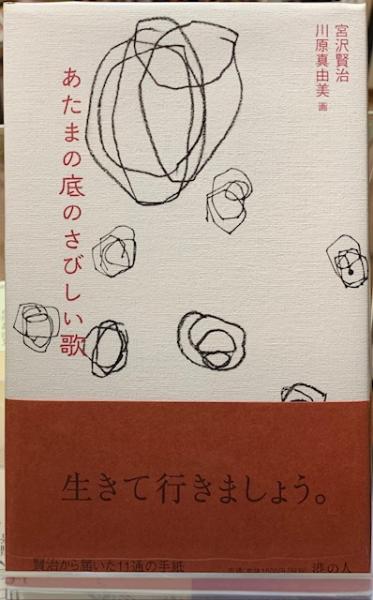 宮沢賢治
川原真由美 画
あたまの底のさびしい歌
生きて行きましょう。
賢治から届いた11通の手紙
港の人